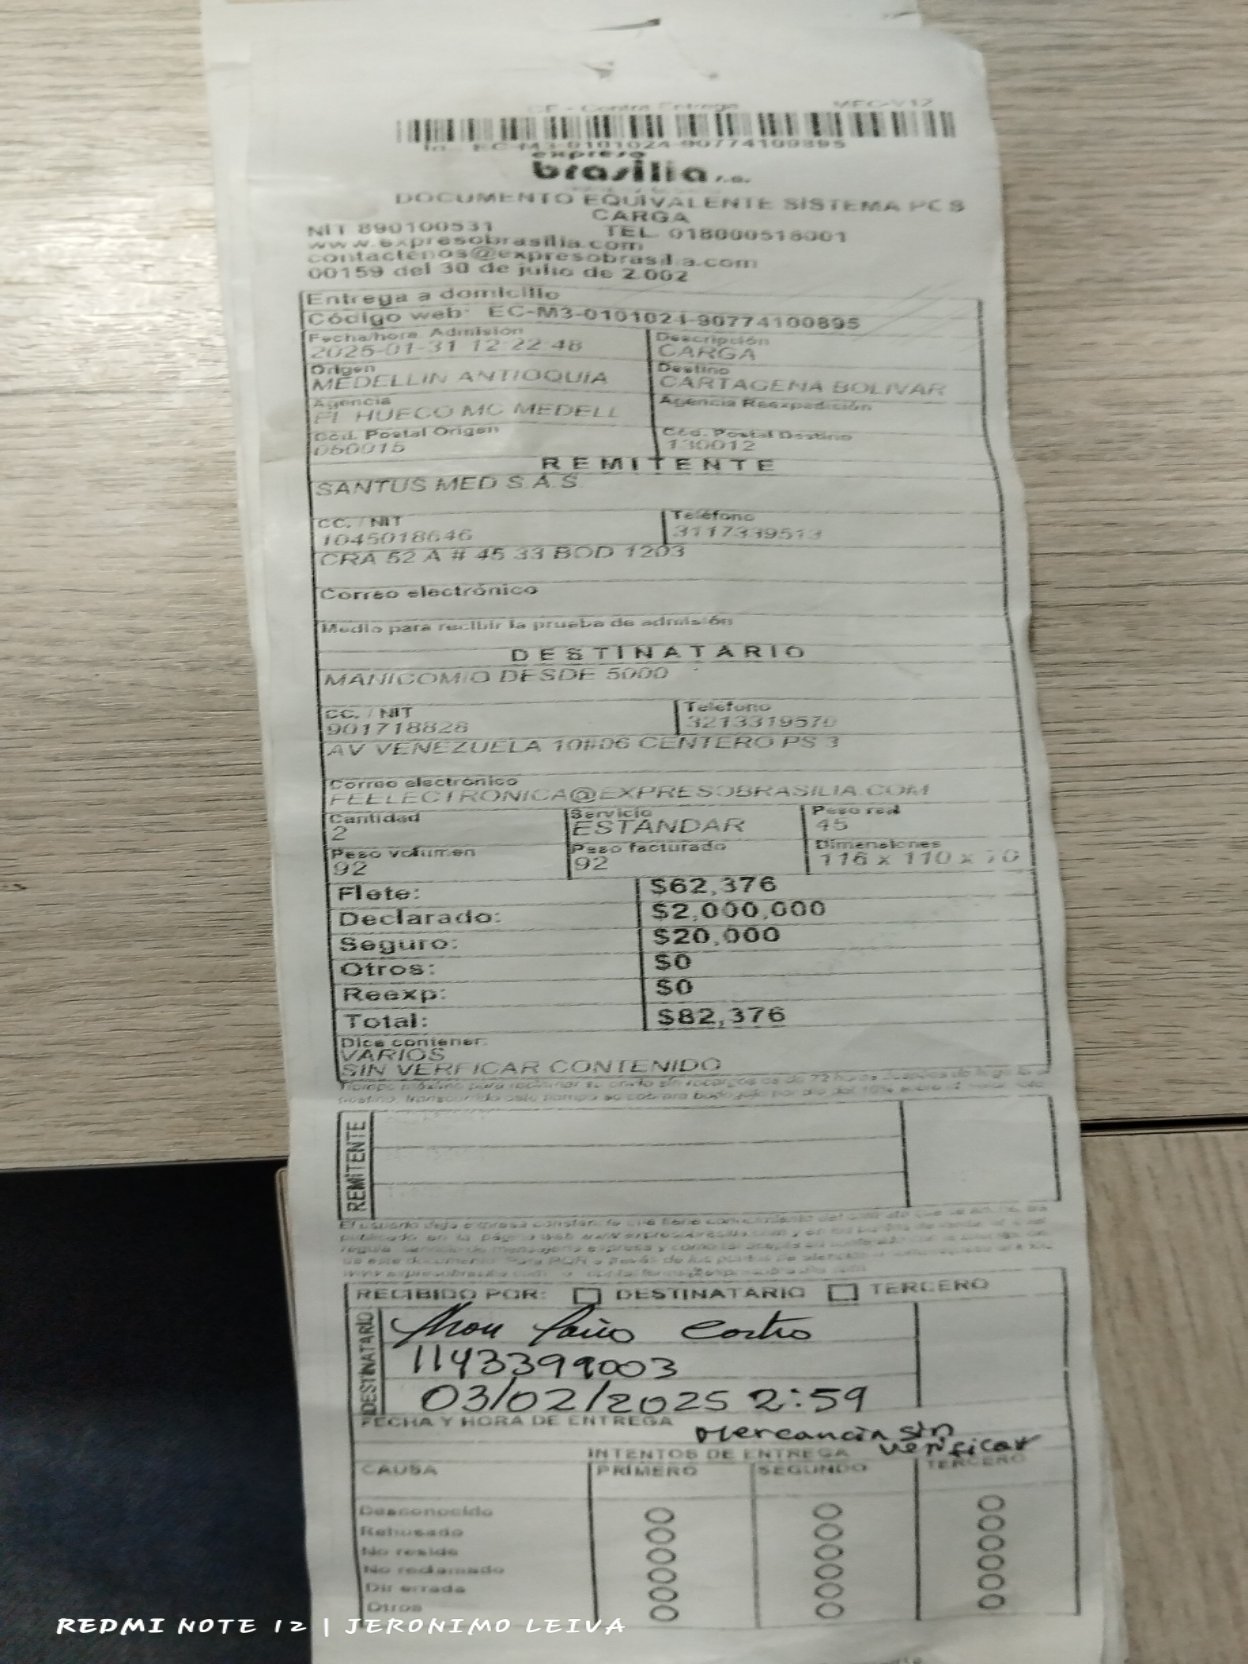 CF - Contra Entrega
expreso
brasilia s.a.
DOCUMENTO EQUIVALENTE SISTEMA PCS
CARGA
NIT 890100531 TEL. 018000518001
www.expresobrasilia.com
contactenos@expresobrasilia.com
00159 del 30 de julio de 2.002
Entrega a domicilio
Código web: EC-M3-0101024-90774100895
Fecha/hora Admisión Descripción
2025-01-31 12:22:48 CARGA
Origen Destino
MEDELLIN ANTIOQUIA CARTAGENA BOLIVAR
Agencia Agencia Reexpedición
EL HUECO MC MEDELL
Cód. Postal Origen Cód. Postal Destino
050015 130012
REMITENTE
SANTUS MED S.A.S
CC. / NIT Teléfono
1045018646 3117339513
CRA 52 A # 45 33 BOD 1203
Correo electrónico
Medio para recibir la prueba de admisión
DESTINATARIO
MANICOMIO DESDE 5000
CC. / NIT Teléfono
901718828 3213319570
AV VENEZUELA 10#06 CENTERO PS 3
Correo electrónico
FEELECTRONICA@EXPRESOBRASILIA.COM
Cantidad Servicio Peso real
2 ESTANDAR 45
Peso volumen Peso facturado Dimensiones
92 92 116 x 110 x 70
Flete: $62,376
Declarado: $2,000,000
Seguro: $20,000
Otros: $0
Reexp: $0
Total: $82,376
Dice contener:
VARIOS
SIN VERFICAR CONTENIDO
REMITENTE
RECIBIDO POR: DESTINATARIO TERCERO
DESTINATARIO
Jhon Jairo Castro
1143399003
03/02/2025 2:59
FECHA Y HORA DE ENTREGA
Mercancia sin
verificar
INTENTOS DE ENTREGA
CAUSA PRIMERO SEGUNDO TERCERO
Desconocido
Rehusado
No reside
No reclamado
Dir errada
Otros
REDMI NOTE 12 | JERONIMO LEIVA